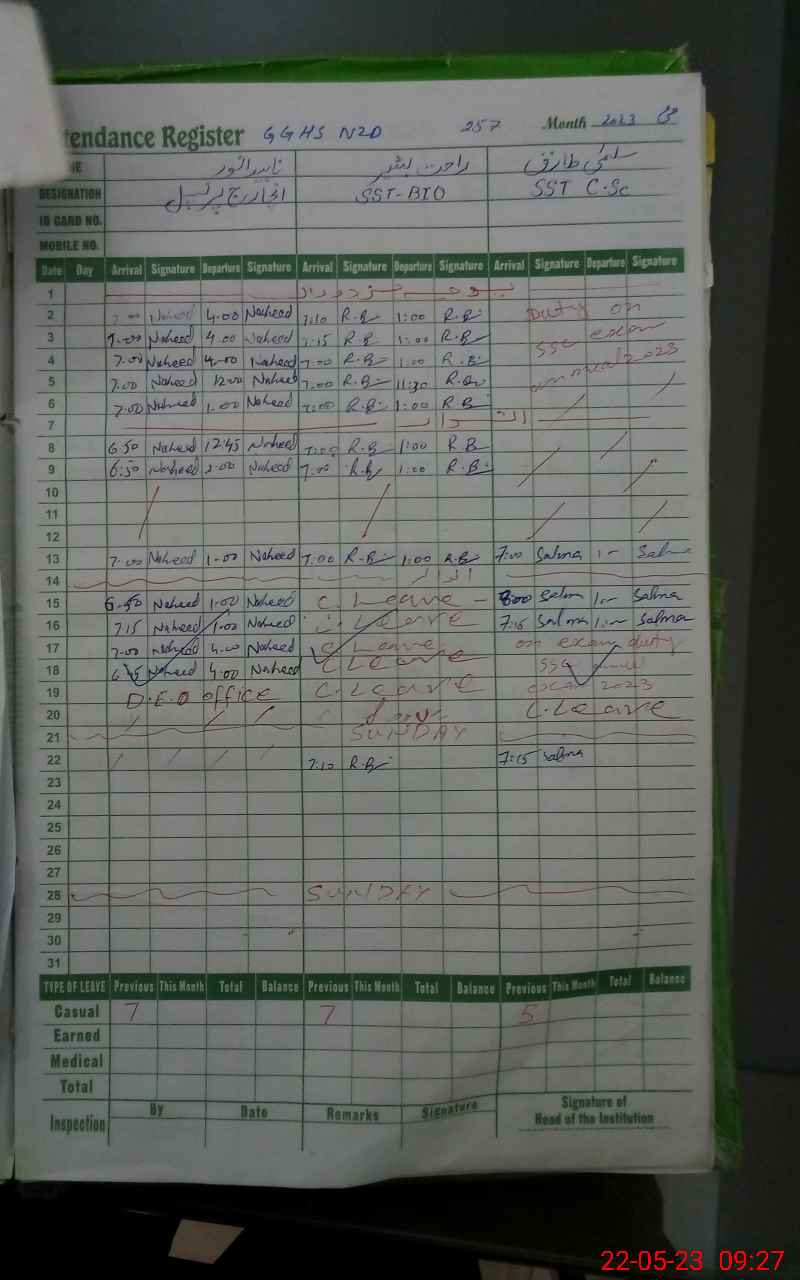 tendance Register GGHS N2D 257 Month 2023 مئی
ناہید انور راحت بشیر سلمیٰ طارق
DESIGNATION انچارج پرنسپل SST-BIO SST C.Sc
ID CARD NO.
MOBILE NO.
Date Day Arrival Signature Departure Signature Arrival Signature Departure Signature Arrival Signature Departure Signature
1
2 7.00 Naheed 4.00 Naheed 7:10 R.B 1:00 R.B Duty on
3 7.00 Naheed 4.00 Naheed 7:15 R.B 1:00 R.B SSC exam
4 7.00 Naheed 4.00 Naheed 7:00 R.B 1:00 R.B 2023
5 7.00 Naheed 12.00 Naheed 7:00 R.B 11:30 R.B
6 7.00 Naheed 1.00 Naheed 7:00 R.B 1:00 R.B
7 اتوار
8 6.50 Naheed 12.45 Naheed 7:00 R.B 1:00 R.B
9 6:50 Naheed 2.00 Naheed 7:00 R.B 1:00 R.B
10
11
12
13 7.00 Naheed 1.00 Naheed 7:00 R.B 1:00 R.B 7:00 Salma 1 Salma
14 اتوار
15 6.50 Naheed 1.00 Naheed C. Leave 8:00 Salma 1 Salma
16 7.15 Naheed 1.00 Naheed C. Leave 7:15 Salma 1 Salma
17 7.00 Naheed 4.00 Naheed C. Leave on exam duty
18 6.45 Naheed 4.00 Naheed C. Leave SSC
19 D.E.O office C. Leave exam 2023
20 C. Leave C. Leave
21 SUNDAY
22 7:10 R.B 7:15 Salma
23
24
25
26
27
28 SUNDAY
29
30
31
TYPE OF LEAVE Previous This Month Total Balance Previous This Month Total Balance Previous This Month Total Balance
Casual 7 7 5
Earned
Medical
Total
Inspection By Date Remarks Signature Signature of
Head of the Institution
22-05-23 09:27